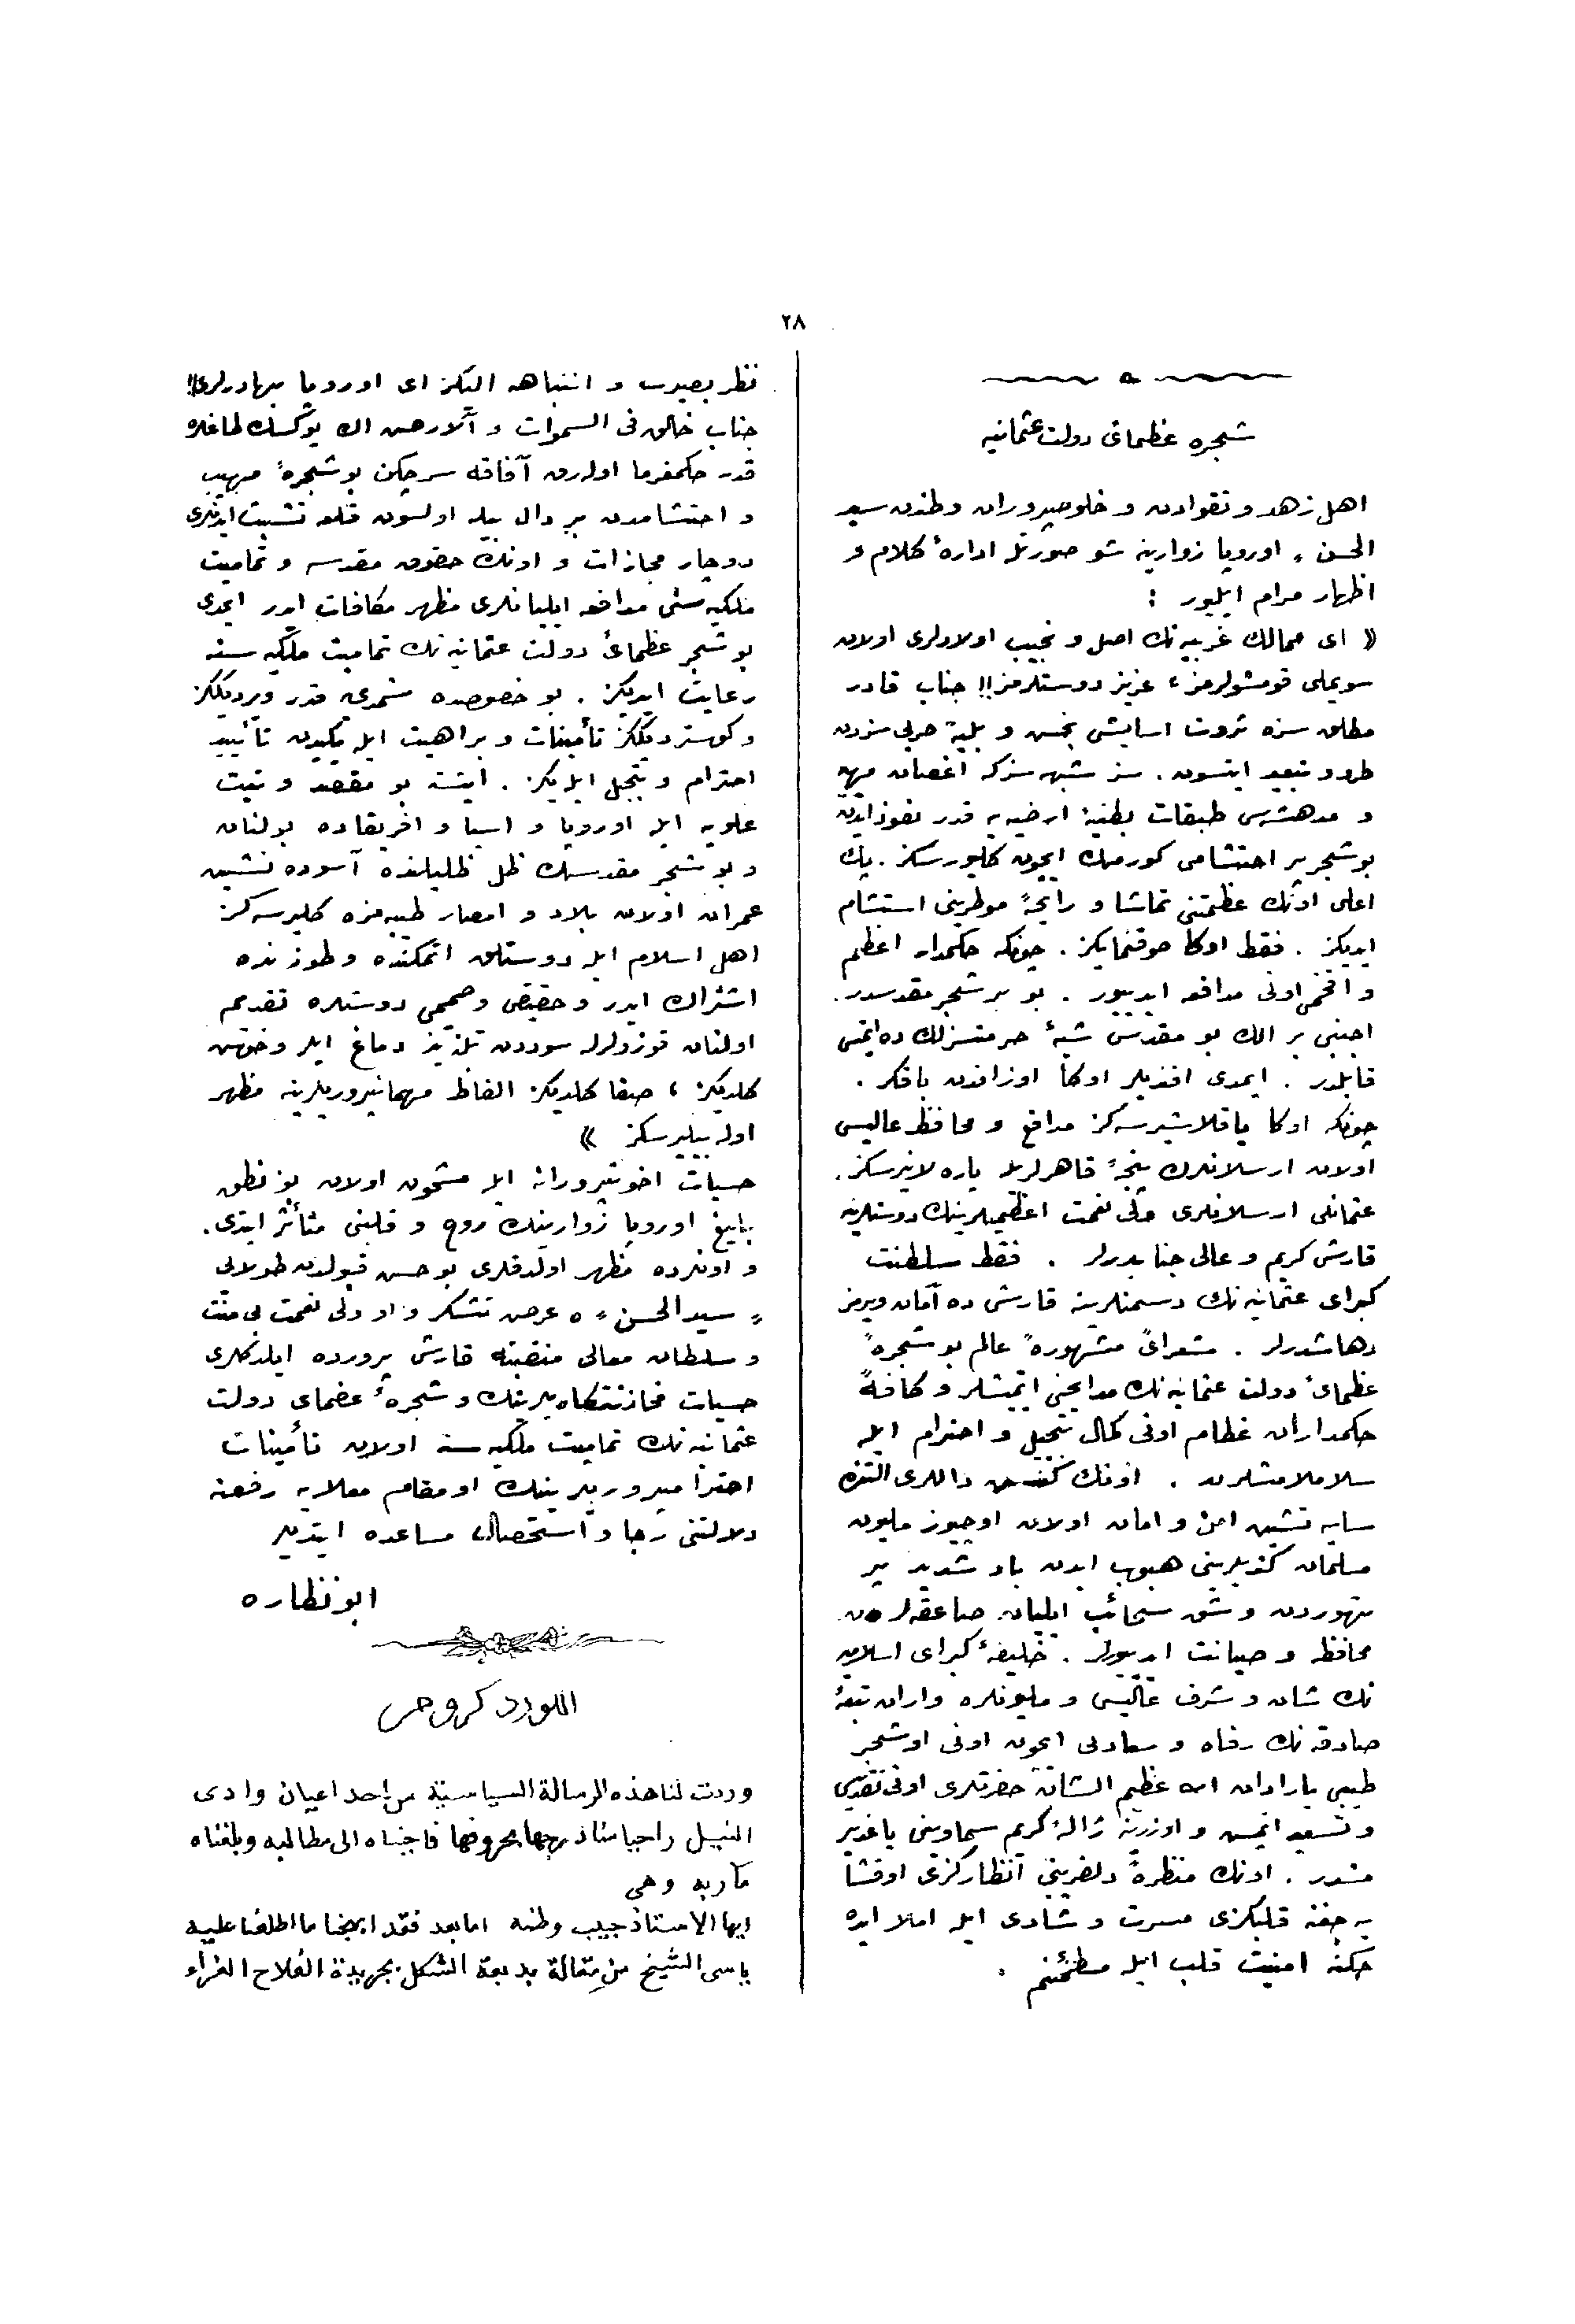 ٢٨
شجره عظمائ دولت عثمانيه
اهل زهد و تقوادن و خلوصپروران وطندن سيد
الحسن ، اوروپا زوارينه شو صورتله ادارۀ كلام و
اظهار مرام ايليور :
« اى ممالك غربيه نك اصل و نجيب اولادلرى اولان
سويملى قومشولرمز ، عزيز دوستلرمز !! جناب قادر
مطلق سزه ثروت اسايش بخش و بليۀ حربى سزدن
طرد و تبعيد ايتسون . سز شبهه سزكه اغصان مهيب
و مدهشه سى طبقات بطنيۀ ارضيه يه قدر نفوذ ايدن
بو شجر پر احتشامى كورمك ايچون كليورسكز . پك
اعلى اونك عظمتنى تماشا و رايحۀ موطرينى استشمام
ايديكز . فقط اوكا طوقنمايكز . چونكه حكمدار اعظم
و افخمى اونى مدافعه ايدييور . بو بر شجر مقدسدر .
اجنبى بر الك بو مقدس شيئۀ حرمتسزلك ده ايتمسى
قابلدر . ايمدى افنديلر اوكا اوزاقدن باقكز .
چونكه اوكا ياقلاشيرسه كز مدافع و محافظ عاليسى
اولان ارسلانلرك پنجۀ قاهرلريله ياره لانيرسكز .
عثمانلى ارسلانلرى ولى نعمت اعظميلرينك دوستلرينه
قارشى كريم و عالى جنابدرلر . فقط سلطنت
كبراى عثمانيه نك دشمنلرينه قارشى ده آمان ويرمز
دهاشدرلر . شعرائ مشهورۀ عالم بو شجرۀ
عظمائ دولت عثمانيه نك مدايحنى ايتمشلر و كافۀ
حكمداران عظام اونى كمال تبجيل و احترام ايله
سلاملامشلردر . اونك داللرى التنده
سايه نشين امن و امان اولان اوچيوز مليون
مسلمان كنديلرينى هبوب ايدن باد شديد پر
تهوردن و شق سحائب ايليان صاعقه لردن
محافظه و صيانت ايدييورلر . خليفۀ كبراى اسلام
نك شان و شرف عاليسى و مليونلره واران تبعۀ
صادقه نك رفاه و سعادتى ايچون اونى او شجر
طيبى يارادان الله عظيم الشان حضرتلرى اونى تقديس
و تسعيد ايتمس و اوزرينه ژالۀ كريم سماويسنى ياغدير
مشدر . اونك منظرۀ دلفريبى انظاركزى اوقشا
يه جغنه قلبكزى مسرت و شادى ايله املا ايده
جكنه امنيت قلب ايله مطمئنم .
نظر بصيرت و انتباهه الكز اى اوروپا بهادرلرى !!
جناب خالق فى السموات و الارض الك يوكسك طاغلره
قدر حكمفرما اوله رق آفاقه سر چكن بو شجرۀ مهيب
و احتشامدن بر دال بيله اولسون قطعه تشبث ايدنلرى
دوچار مجازات و اونك حقوق مقدسه و تماميت
ملكيه سنى مدافعه ايليانلرى مظهر مكافات ايدر ايمدى
بو شجر عظمائ دولت عثمانيه نك تماميت ملكيه سنه
رعايت ايديكز . بو خصوصده شمدى يه قدر ويرديككز
و كوسترديككز تأمينات و براهيت ايله يكيدن تأييد
احترام و تبجيل ايله يكز . ايشته بو مقصد و نيت
علويه ايله اوروپا و اسيا و افريقاده بولنان
و بو شجر مقدسك ظل ظليلنده آسوده نشين
عمران اولان بلاد و امصار طيبه مزه كليرسه كز
اهل اسلام ايله دوستلق اتمكنده و طوزنده
اشتراك ايدر و حقيقى و صميمى دوستلره تقديم
اولنان قوزولرله سوددن تلذيذ دماغ ايلر و خوش
كلديكز ، صفا كلديكز الفاظ مهمانپروريلرينه مظهر
اوله بيليرسكز »
حسيات اخوتپرورانه ايله مشحون اولان بو نطق
بليغ اوروپا زوارينك روح و قلبنى متأثر ايتدى .
و اونلرده مظهر اولدقلرى بو حسن قبولدن طولايى
« سيد الحسن » ه عرض تشكر و او ولى نعمت بى منت
و سلطان معالى منقبته قارشى پرورده ايلدكلرى
حسيات لرينك و شجرۀ عضماى دولت
عثمانيه نك تماميت ملكيه سنه اولان تأمينات
احترامپروريلرينك او مقام معلايه رفعنه
دلالتنى رجا و استحصال مساعده ايتديلر
ابو نظاره
اللورد كرومر
وردت لنا هذه الرسالة السياسية من احد اعيان وادى
النيل راجيا منا درجها بحروفها فاجبناه الى مطالبه وبلغناه
مآربه وهى
ايها الاستاذ حبيب وطنه اما بعد فقد ابهجنا ما اطلعنا عليه
ياسى الشيخ من مقالة بديعة الشكل بجريدة الفلاح الغراء